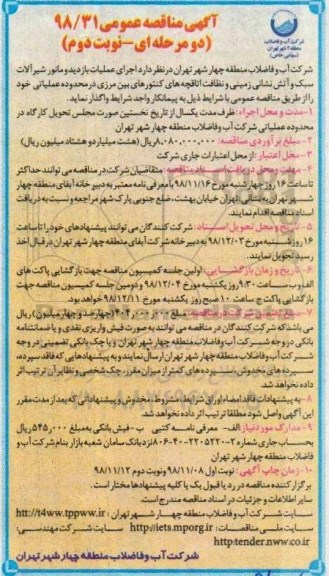 آگهی مناقصه عمومی ۹۸/۳۱
(دو مرحله ای-نوبت دوم)
شرکت آب و فاضلاب
منطقه ۴ شهر تهران
(سهامی خاص)
شرکت آب و فاضلاب منطقه چهار شهر تهران در نظر دارد اجرای عملیات بازدید و مانور شیرآلات
سبک و آتش نشانی زمینی و نظافت اتاقچه های کنتورهای بین مرزی در محدوده عملیاتی خود
را از طریق مناقصه عمومی با شرایط ذیل به پیمانکار واجد شرایط واگذار نماید.
۱-مدت و محل اجراء: ظرف مدت یکسال از تاریخ نخستین صورت مجلس تحویل کارگاه در
محدوده عملیاتی شرکت آب و فاضلاب منطقه چهار شهر تهران
۲- مبلغ برآوردی مناقصه: ۸,۰۸۰,۰۰۰,۰۰۰ریال (هشت میلیارد و هشتاد میلیون ریال)
۳- محل اعتبار: از محل اعتبارات جاری شرکت
۴- مهلت و محل دریافت اسناد مناقصه: متقاضیان شرکت در مناقصه می توانند حداکثر
تا ساعت ۱۶ روز چهارشنبه مورخ ۹۸/۱۱/۱۶ با معرفی نامه معتبر به دبیرخانه آبفای منطقه چهار
شهر تهران به نشانی تهران خیابان بهشت، ضلع جنوبی پارک شهر مراجعه و نسبت به دریافت
اسناد مناقصه اقدام نمایند.
۵- تاریخ و محل تحویل اسناد: شرکت کنندگان می توانند پیشنهادهای خود را تا ساعت
۱۶ روز شنبه مورخ ۹۸/۱۲/۰۳ به دبیرخانه شرکت آبفای منطقه چهار شهر تهران در قبال اخذ
رسید تحویل نمایند.
۶- تاریخ و زمان بازگشایی: اولین جلسه کمیسیون مناقصه جهت بازگشایی پاکت های
الف و ب ساعت ۹:۳۰ روز یکشنبه مورخ ۹۸/۱۲/۰۴ و دومین جلسه کمیسیون مناقصه جهت
بازگشایی پاکت ج ساعت ۱۰ صبح روز یکشنبه مورخ ۹۸/۱۲/۱۱ خواهد بود.
۷- تضمین شرکت در مناقصه: مبلغ ۴۰۴,۰۰۰,۰۰۰(چهارصد و چهار میلیون) ریال
می باشد که شرکت کنندگان در مناقصه می توانند به صورت فیش واریزی نقدی و یا ضمانتنامه
بانکی در وجه شرکت آب و فاضلاب منطقه چهار شهر تهران و یا چک بانکی تضمینی در وجه
شرکت آب و فاضلاب منطقه چهار شهر تهران ارسال نمایند و به پیشنهادهایی که فاقد سپرده،
سپرده های مخدوش، سپرده های کمتر از میزان مقرر، چک شخصی و نظایر آن ترتیب اثر
داده نخواهد شد.
۸- به پیشنهادات فاقد امضاء اوراق شرایط، مشروط، مخدوش و پیشنهاداتی که بعد از مدت مقرر
این آگهی واصل شود مطلقا ترتیب اثر داده نخواهد شد.
۹- مدارک مورد نیاز: الف- معرفی نامه کتبی ب- فیش بانکی به مبلغ ۵۴۵,۰۰۰ ریال
بحساب جاری شماره ۲-۲۲۰۵۲۲۰-۴۰-۸۰۶ نزد بانک سامان شعبه بازار بنام شرکت آب و
فاضلاب منطقه چهار شهر تهران
۱۰- زمان چاپ آگهی: نوبت اول ۹۸/۱۱/۰۸ و نوبت دوم ۹۸/۱۱/۱۲
برگزار کننده مناقصه در رد یا قبول یک یا کلیه پیشنهادها مختار است.
سایر اطلاعات و جزئیات در اسناد مناقصه مندرج است.
سایت شرکت آب و فاضلاب منطقه چهار شهر تهران: htt://t4ww.tpww.ir
سایت ملی مناقصات: http://iets.mporg.ir سایت شرکت مهندسی:
http:tender.nww.co.ir
شرکت آب و فاضلاب منطقه چهار شهر تهران